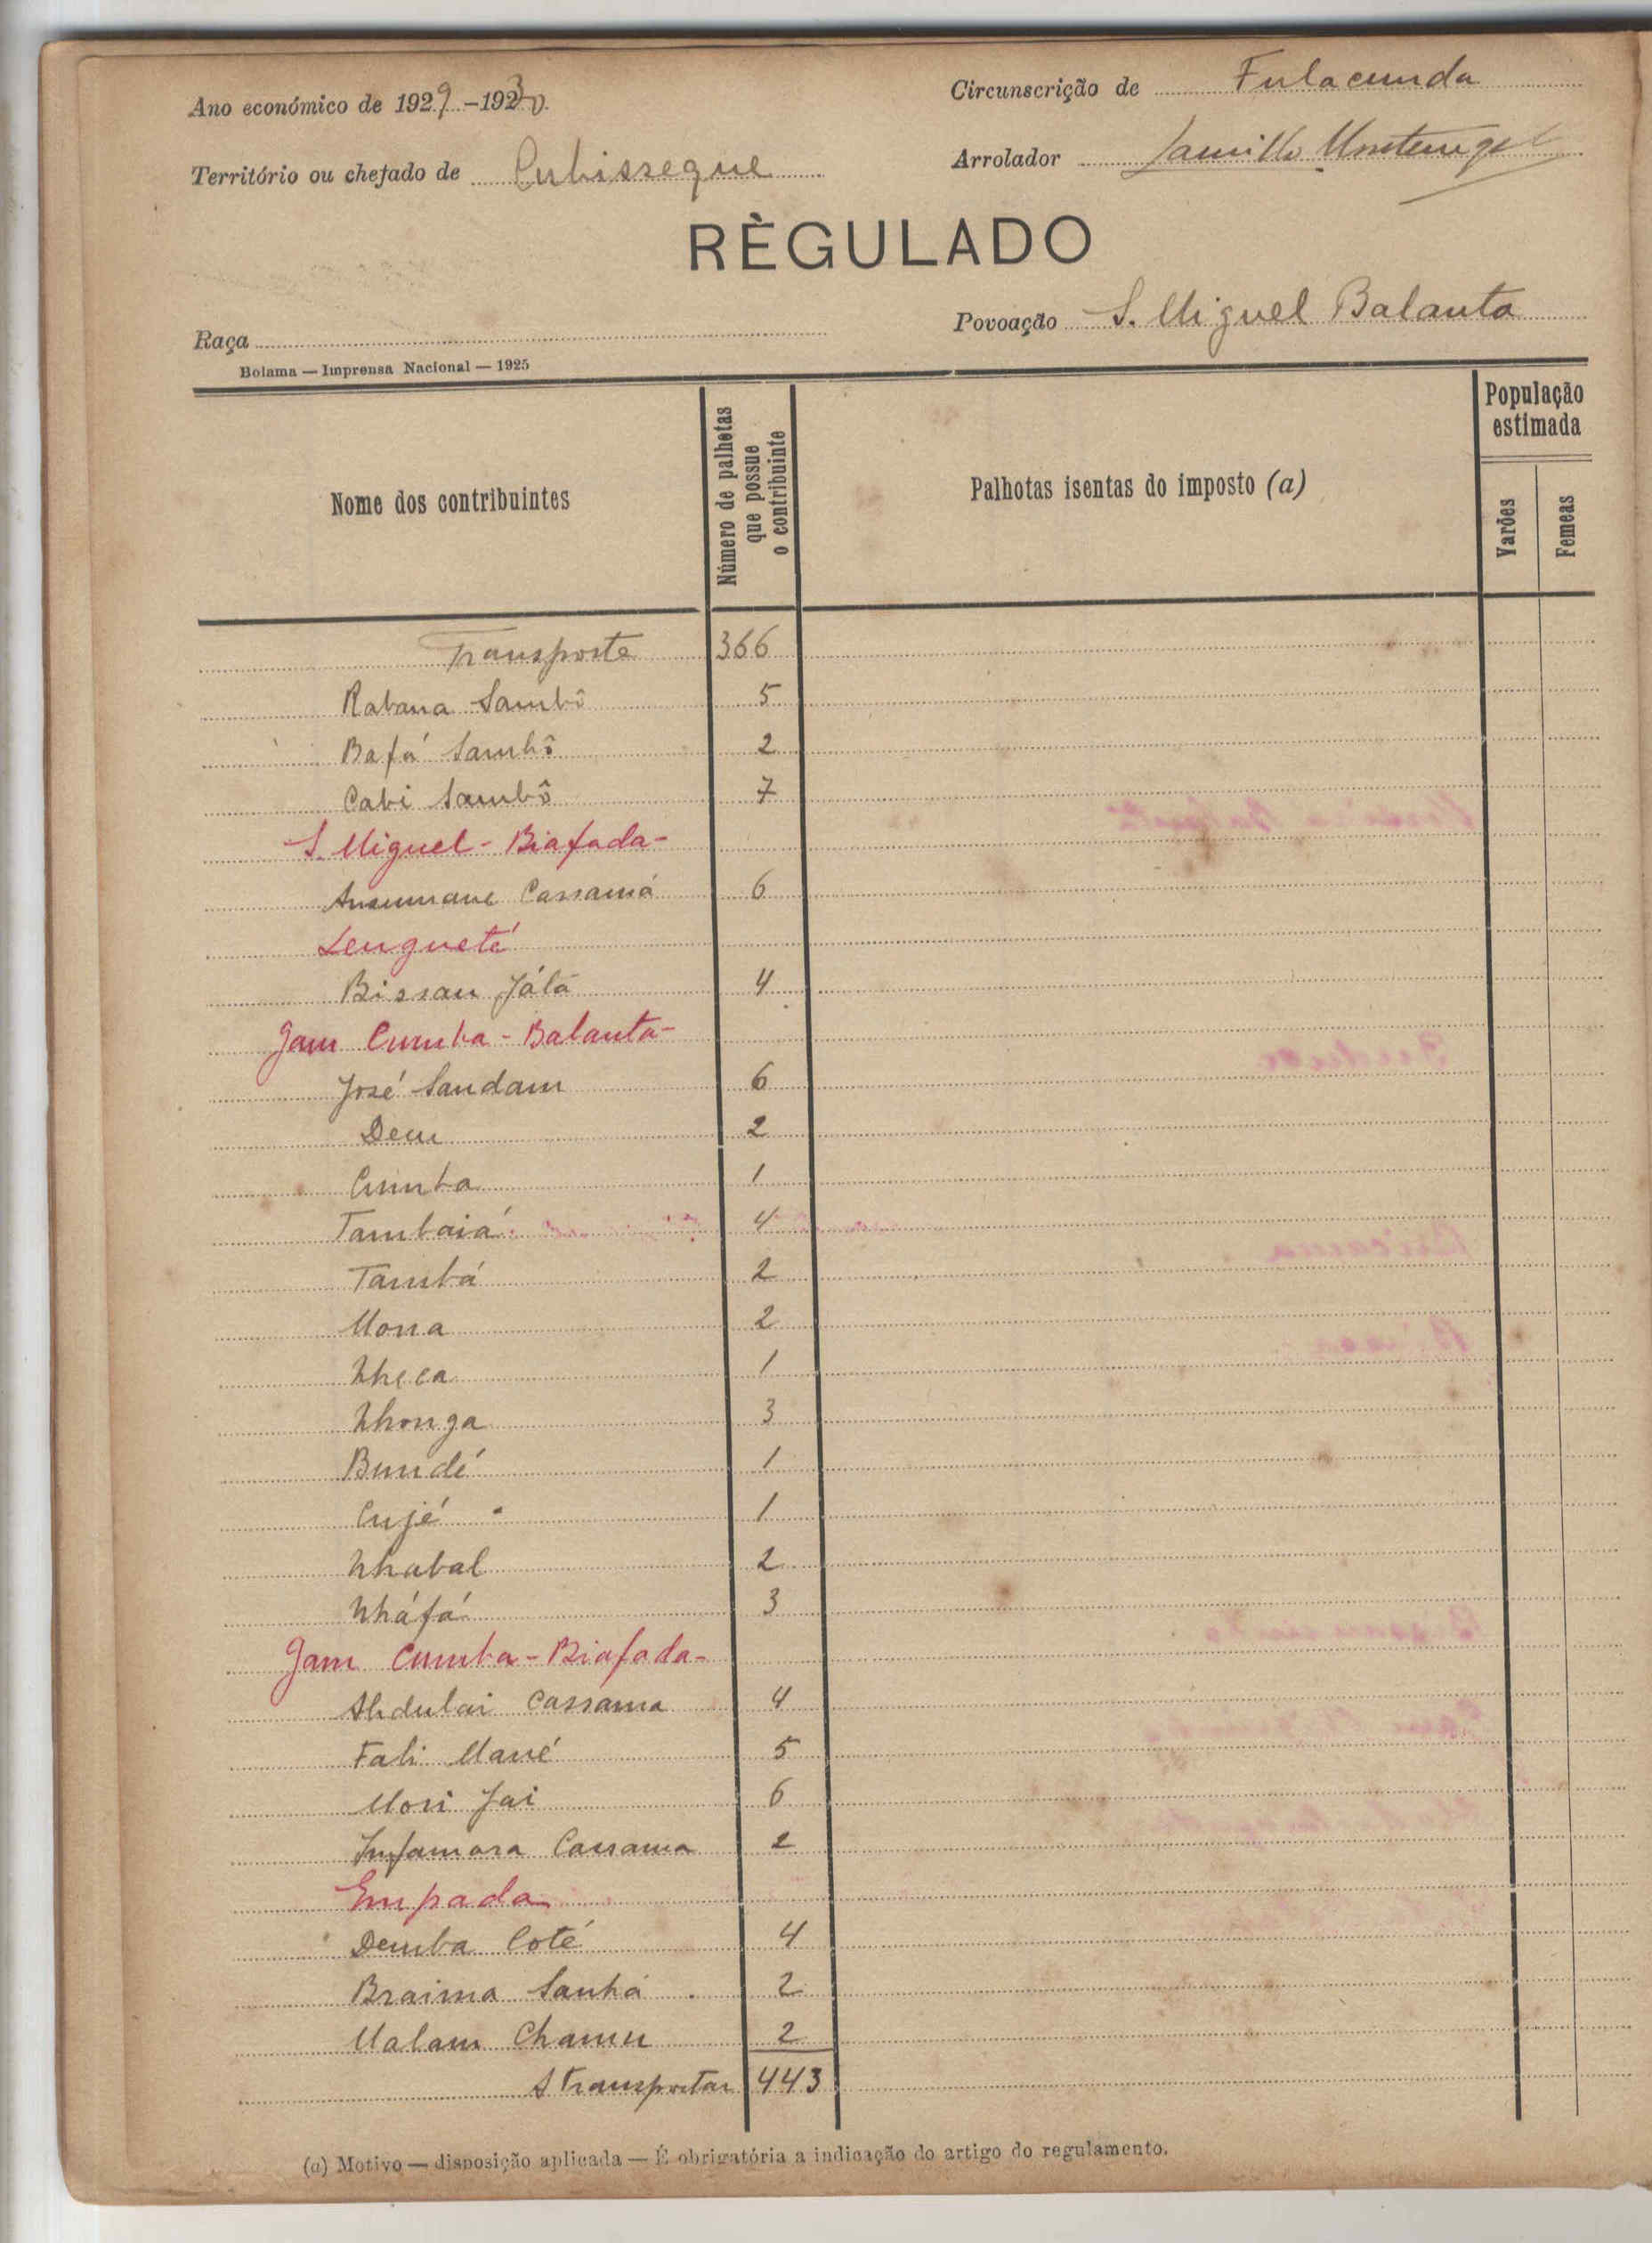 Ano económico de 1929-1930.
Circunscrição de Fulacunda
Território ou chefado de Cubisseque
Arrolador Camillo Montenegro
RÈGULADO
Raça
Povoação S. Miguel Balanta
Bolama — Imprensa Nacional — 1925
Nome dos contribuintes
Número de palhotas que possue o contribuinte
Palhotas isentas do imposto (a)
População estimada
Varões
Femeas
Transporte 366
Rabana Sambô 5
Bafá Sambô 2
Cabi Sambô 7
S. Miguel - Biafada-
Ansumane Cassamá 6
Lengueté
Bissau Jálá 4
Gam Cumba - Balanta-
José Sandam 6
Dem 2
Cumba 1
Tambaiá 4
Tambá 2
Mona 2
Nheca 1
Nhonga 3
Bundé 1
Cujé 1
Nhabal 2
Nháfá 3
Gam Cumba - Biafada-
Abdulai Cassama 4
Fali Mané 5
Mori Jai 6
Infamara Cassama 2
Empada
Demba Coté 4
Braima Sanhá 2
Malam Chamu 2
A transportar 443
(a) Motivo — disposição aplicada — É obrigatória a indicação do artigo do regulamento.